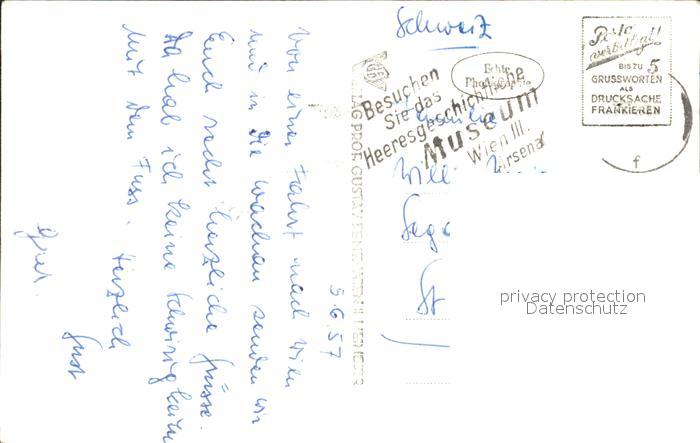 Schweiz
Porto
verbilligt!
BIS ZU 5
GRUSSWORTEN
ALS
DRUCKSACHE
FRANKIEREN
Echte
Photographie
Besuchen
Sie das
Heeresgeschichtliche
Museum
Wien III.
Arsenal
f
Familie
Willi
St
privacy protection
Datenschutz
VERLAG PROF. GUSTAV
5.6.57
Von einer Fahrt nach Wien
und in die Wachau senden wir
Euch recht herzliche Grüsse.
Da hab ich keine Schwierigkeiten
mit dem Fuss. Herzlich
Gust